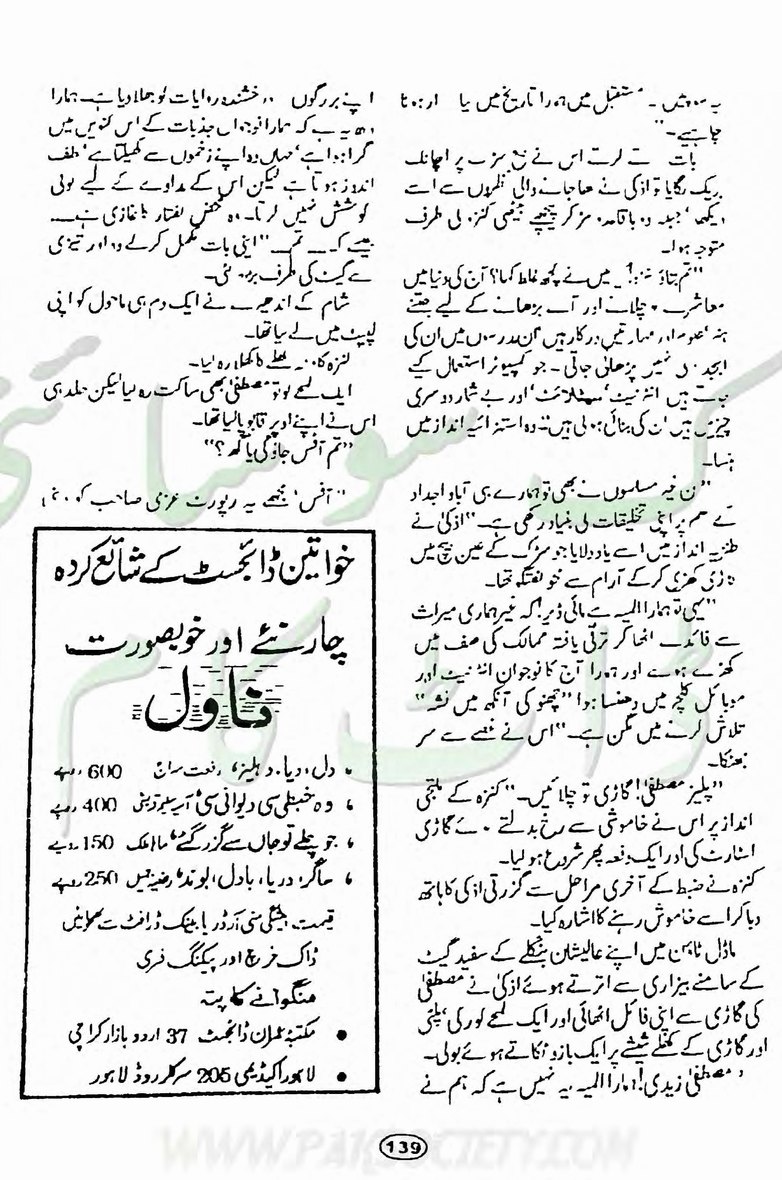 چاہیے۔"
بات کرتے کرتے اس نے
بریک لگایا تو ازکی نے کھا جانے والی نظروں سے اسے
دیکھا جبکہ وہ باقاعدہ مڑ کر پیچھے بیٹھی کنزہ کی طرف
متوجہ ہوا۔
میں نے کچھ غلط کہا؟ آج کی دنیا میں
معاشرے چلانے اور آگے بڑھانے کے لیے جتنے
ہنر، علوم اور مہارتیں درکار ہیں ان مدرسوں میں ان کی
ابجد بھی نہیں پڑھائی جاتی۔ جو کمپیوٹر استعمال کیے
جاتے ہیں انٹرنیٹ، سیٹلائٹ، اور بے شمار دوسری
چیزیں ہیں ان کی بنائی ہوئی ہیں" وہ استہزائیہ انداز میں
ہنسا۔
"ان غیر مسلموں نے بھی تو ہمارے ہی آباؤ اجداد
کے علم پر اپنی تخلیقات کی بنیاد رکھی ہے۔" ازکی نے
طنزیہ انداز میں اسے یاد دلایا جو سڑک کے عین بیچ میں
گاڑی کھڑی کرکے آرام سے محو گفتگو تھا۔
"یہی تو ہمارا المیہ ہے مائی ڈیر! کہ غیر ہماری میراث
سے فائدے اٹھا کر ترقی یافتہ ممالک کی صف میں
کھڑے ہوئے اور ہمارا آج کا نوجوان انٹرنیٹ اور
موبائل کلچر میں دھنسا ہوا "چھنو کی آنکھ میں نشہ"
تلاش کرنے میں مگن ہے۔" اس نے غصے سے سر
جھٹکا۔
"پلیز مصطفیٰ! گاڑی تو چلائیں۔" کنزہ کے ملتجی
انداز پر اس نے خاموشی سے رخ بدلتے ہوئے گاڑی
اسٹارٹ کی اور ایک دفعہ پھر شروع ہو گیا۔
کنزہ نے ضبط کے آخری مراحل سے گزرتی ازکی کا ہاتھ
دبا کر اسے خاموش رہنے کا اشارہ کیا۔
ماڈل ٹاؤن میں اپنے عالیشان بنگلے کے سفید گیٹ
کے سامنے بیزاری سے اترتے ہوئے ازکی نے مصطفیٰ
کی گاڑی سے اپنی فائل اٹھائی اور ایک لمحے کو رکی، پلٹی
اور گاڑی کے کھلے شیشے پر ایک بازو ٹکاتے ہوئے بولی۔
"مصطفیٰ زیدی! ہمارا المیہ یہ نہیں ہے کہ ہم نے
اپنے بزرگوں کی درخشندہ روایات کو بھلا دیا ہے۔ ہمارا
المیہ یہ ہے کہ ہمارا نوجوان جذبات کے اس کنویں میں
گرا ہوا ہے، جہاں وہ اپنے زخموں سے کھیلتا ہے، لطف
اندوز ہوتا ہے لیکن اس کے مداوے کے لیے کوئی
کوشش نہیں کرتا۔ وہ محض گفتار کا غازی ہے۔
جیسے کہ۔ تم۔" اپنی بات مکمل کرکے وہ اور تیزی
سے گیٹ کی طرف بڑھ گئی۔
شام کے اندھیرے نے ایک دم ہی ماحول کو اپنی
لپیٹ میں لے لیا تھا۔
کنزہ کا منہ کھلے کا کھلا رہ گیا۔
ایک لمحے کو تو مصطفیٰ بھی ساکت رہ گیا لیکن جلد ہی
اس نے اپنے اوپر قابو پا لیا تھا۔
"تم آفس جاؤ گی یا گھر؟"
"آفس، مجھے یہ رپورٹ عزمی صاحب کو
خواتین ڈائجسٹ کے شائع کردہ
چار نئے اور خوبصورت
ناول
دل، دیا، دہلیز، رفعت سراج 600 روپے
وہ خبطی سی دیوانی سی، آسیہ سلیم قریشی 400 روپے
جو چلے تو جاں سے گزر گئے، ماہا ملک 150 روپے
ساگر، دریا، بادل، بوند، رضیہ جمیل 250 روپے
قیمت پیشگی منی آرڈر یا بینک ڈرافٹ سے بھجوائیں
ڈاک خرچ اور پیکنگ فری
منگوانے کا پتہ
• مکتبہ عمران ڈائجسٹ 37 اردو بازار کراچی
• لاہور اکیڈیمی 205 سرکلر روڈ لاہور
139
WWW.PAKSOCIETY.COM